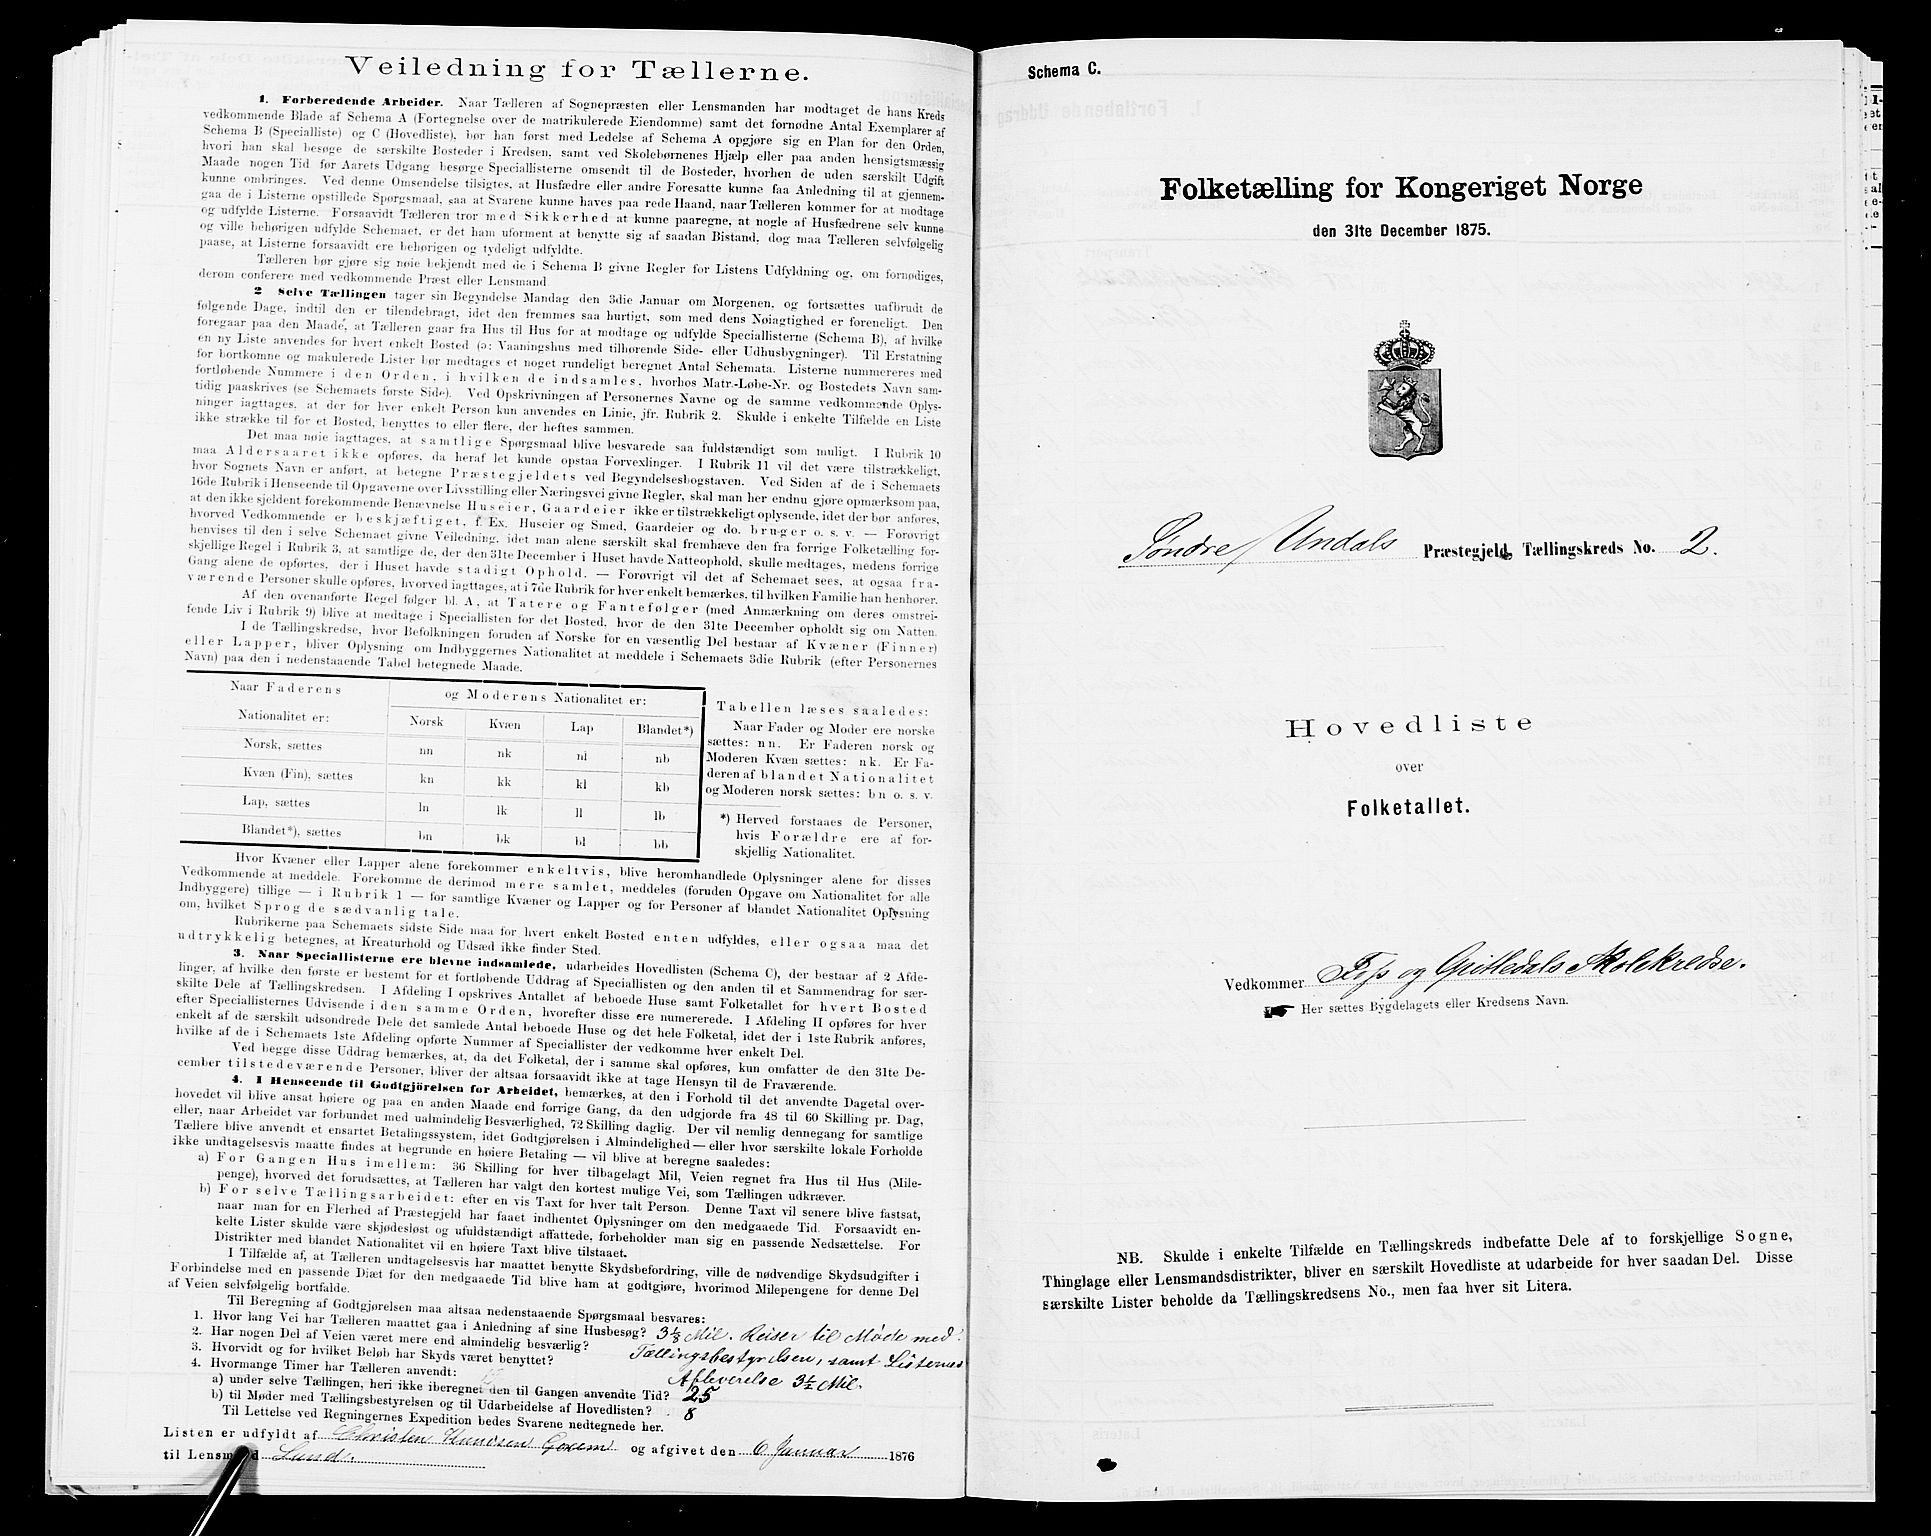 Veiledning for Tællerne.
1. Forberedende Arbeider. Naar Tælleren af Sognepræsten eller Lensmanden har modtaget de hans Kreds
vedkommende Blade af Schema A (Fortegnelse over de matrikulerede Eiendomme) samt det fornødne Antal Exemplarer af
Schema B (Specialliste) og C (Hovedliste), bør han først med Ledelse af Schema A opgjøre sig en Plan for den Orden,
hvori han skal besøge de særskilte Bosteder i Kredsen, samt ved Skolebørnenes Hjælp eller paa anden hensigtsmæssig
Maade nogen Tid før Aarets Udgang besørge Speciallisterne omsendt til de Bosteder, hvorhen de uden særskilt Udgift
kunne ombringes. Ved denne Omsendelse tilsigtes, at Husfædre eller andre Foresatte kunne faa Anledning til at gjennem-
gaa de i Listerne opstillede Spørgsmaal, saa at Svarene kunne haves paa rede Haand, naar Tælleren kommer for at modtage
og udfylde Listerne. Forsaavidt Tælleren tror med Sikkerhed at kunne paaregne, at nogle af Husfædrene selv kunne
og ville behørigen udfylde Schemaet, er det ham uforment at benytte sig af saadan Bistand, dog maa Tælleren selvfølgelig
paase, at Listerne forsaavidt ere behørigen og tydeligt udfyldte.
Tælleren bør gjøre sig nøie bekjendt med de i Schema B givne Regler for Listens Udfyldning og, om fornødiges,
derom conferere med vedkommende Præst eller Lensmand
2 Selve Tællingen tager sin Begyndelse Mandag den 3die Januar om Morgenen, og fortsættes uafbrudt de
følgende Dage, indtil den er tilendebragt, idet den fremmes saa hurtigt, som med dens Nøiagtighed er foreneligt. Den
foregaar paa den Maade, at Tælleren gaar fra Hus til Hus for at modtage og udfylde Speciallisterne (Schema B), af hvilke
en ny Liste anvendes for hvert enkelt Bosted (ɔ: Vaaningshus med tilhørende Side- eller Udhusbygninger). Til Erstatning
for bortkomne og makulerede Lister bør medtages et noget rundeligt beregnet Antal Schemata. Listerne nummereres med
fortløbende Nummere i den Orden, i hvilken de indsamles, hvorhos Matr.-Løbe-Nr. og Bostedets Navn sam-
tidig paaskrives (se Schemaets første Side). Ved Opskrivningen af Personernes Navne og de samme vedkommende Oplys-
ninger iagttages, at der for hver enkelt Person kun anvendes en Linie, jfr. Rubrik 2. Skulde i enkelte Tilfælde en Liste
ikke strække til for et Bosted, benyttes to eller flere, der heftes sammen.
Det maa nøie iagttages, at samtlige Spørgsmaal blive besvarede saa fuldstændigt som muligt. I Rubrik 10
maa Aldersaaret ikke opføres, da heraf let kunde opstaa Forvexlinger. I Rubrik 11 vil det være tilstrækkeligt,
hvor Sognets Navn er anført, at betegne Præstegjeldets ved Begyndelsesbogstaven. Ved Siden af de i Schemaets
16de Rubrik i Henseende til Opgaverne over Livsstilling eller Næringsvei givne Regler, skal man her endnu gjøre opmærksom paa,
at den ikke sjeldent forekommende Benævnelse Huseier, Gaardeier ikke er tilstrækkeligt oplysende, idet der bør anføres,
hvorved Vedkommende er beskjæftiget, f. Ex. Huseier og Smed, Gaardeier og do. bruger o. s. v. — Forøvrigt
henvises til den i selve Schemaet givne Veiledning, idet man alene særskilt skal fremhæve den fra forrige Folketælling for-
skjellige Regel i Rubrik 3, at samtlige de, der den 31te December i Huset havde Natteophold, skulle medtages, medens forrige
Gang alene de opførtes, der i Huset havde stadigt Ophold. — Forøvrigt vil det af Schemaet sees, at ogsaa fra-
værende Personer skulle opføres, hvorved iagttages, at i 7de Rubrik for hver enkelt bemærkes, til hvilken Familie han henhører.
Af den ovenanførte Regel følger bl. A, at Tatere og Fantefølger (med Anmærkning om deres omstrei-
fende Liv i Rubrik 9) blive at medtage i Speciallisten for det Bosted, hvor de den 31te December opholdt sig om Natten.
I de Tællingskredse, hvor Befolkningen foruden af Norske for en væsentlig Del bestaar af Kvæner (Finner)
eller Lapper, bliver Oplysning om Indbyggernes Nationalitet at meddele i Schemaets 3die Rubrik (efter Personernes
Navn) paa den i nedenstaaende Tabel betegnede Maade.
Naar Faderens
Nationalitet er:
og Moderens Nationalitet er:
Norsk Kvæn Lap Blandet*)
Norsk, sættes nn nk nl nb
Kvæn (Fin), sættes kn kk kl kb
Lap, sættes ln lk ll lb
Blandet*), sættes bn bk bl bb
Tabellen læses saaledes:
Naar Fader og Moder ere norske
sættes: nn. Er Faderen norsk og
Moderen Kvæn sættes: nk. Er Fa-
deren af blandet Nationalitet
og Moderen norsk sættes: bn o. s. v.
*) Herved forstaaes de Personer,
hvis Forældre ere af for-
skjellig Nationalitet.
Hvor Kvæner eller Lapper alene forekommer enkeltvis, blive heromhandlede Oplysninger alene for disses
Vedkommende at meddele. Forekomme de derimod mere samlet, meddeles (foruden Opgave om Nationalitet for alle
Indbyggere) tillige — i Rubrik 1 — for samtlige Kvæner og Lapper og for Personer af blandet Nationalitet Oplysning
om, hvilket Sprog de sædvanlig tale.
Rubrikerne paa Schemaets sidste Side maa for hvert enkelt Bosted enten udfyldes, eller ogsaa maa det
udtrykkelig betegnes, at Kreaturhold og Udsæd ikke finder Sted.
3. Naar Speciallisterne ere blevne indsamlede, udarbeides Hovedlisten (Schema C), der bestaar af 2 Afde-
linger, af hvilke den første er bestemt for et fortløbende Uddrag af Speciallisten og den anden til et Sammendrag for sær-
skilte Dele af Tællingskredsen. I Afdeling I opskrives Antallet af beboede Huse samt Folketallet for hvert Bosted
efter Speciallisternes Udvisende i den samme Orden, hvorefter disse ere nummererede. I Afdeling II opføres for hver
enkelt af de særskilt udsondrede Dele det samlede Antal beboede Huse og det hele Folketal, idet der i 1ste Rubrik anføres,
hvilke af de i Schemaets 1ste Afdeling opførte Nummer af Speciallister der vedkomme hver enkelt Del.
Ved begge disse Uddrag bemærkes, at, da det Folketal, der i samme skal opføres, kun omfatter de den 31te De-
cember tilstedeværende Personer, bliver der altsaa forsaavidt ikke at tage Hensyn til de Fraværende.
4. I Henseende til Godtgjörelsen for Arbeidet, bemærkes, at den i Forhold til det anvendte Dagetal over-
hovedet vil blive ansat høiere og paa en anden Maade end forrige Gang, da den udgjorde fra 48 til 60 Skilling pr. Dag,
eller, naar Arbeidet var forbundet med ualmindelig Besværlighed, 72 Skilling daglig. Der vil nemlig dennegang for samtlige
Tællere blive anvendt et ensartet Betalingssystem, idet Godtgjørelsen i Almindelighed — eller hvor særskilte lokale Forholde
ikke undtagelsesvis maatte findes at begrunde en høiere Betaling — vil blive at beregne saaledes:
a) For Gangen Hus imellem: 36 Skilling for hver tilbagelagt Mil, Veien regnet fra Hus til Hus (Mile-
penge), hvorved det forudsættes, at Tælleren har valgt den kortest mulige Vei, som Tællingen udkræver.
b) For selve Tællingsarbeidet: efter en vis Taxt for hver talt Person. Denne Taxt vil senere blive fastsat,
naar man for en Flerhed af Præstegjeld har faaet indhentet Oplysninger om den medgaaede Tid. Forsaavidt en-
kelte Lister skulde være skjødesløst og ufuldstændigt affattede, forbeholder man sig en passende Nedsættelse. For
Distrikter med blandet Nationalitet vil en høiere Taxt blive tilstaaet.
I Tilfælde af, at Tælleren undtagelsesvis har maattet benytte Skydsbefordring, ville de nødvendige Skydsudgifter i
Forbindelse med en passende Diæt for den medgaaede Tid blive ham at godtgjøre, hvorimod Milepengene for denne Del
af Veien selvfølgelig bortfalde.
Til Beregning af Godtgjørelsen maa altsaa nedenstaaende Spørgsmaal besvares:
1. Hvor lang Vei har Tælleren maattet gaa i Anledning af sine Husbesøg? 3⅛ Mil. Reiser til Møde med
2. Har nogen Del af Veien været mere end almindelig besværlig? Tællingsbestyrelsen, samt Listernes
3. Hvorvidt og for hvilket Beløb har Skyds været benyttet? Afleverelse 3½ Mil.
4. Hvormange Timer har Tælleren anvendt:
a) under selve Tællingen, heri ikke iberegnet den til Gangen anvendte Tid? 25
b) til Møder med Tællingsbestyrelsen og til Udarbeidelse af Hovedlisten? 8
Til Lettelse ved Regningernes Expedition bedes Svarene nedtegnede her.
Listen er udfyldt af Christen Knudsen og afgivet den 6 Januar 1876
til Lensmand Lund.
Schema C.
Folketælling for Kongeriget Norge
den 31te December 1875.
Søndre Undals Præstegjeld, Tællingskreds No. 2.
Hovedliste
over
Folketallet.
Vedkommer og Gitledals Skolekredse.
Her sættes Bygdelagets eller Kredsens Navn.
NB. Skulde i enkelte Tilfælde en Tællingskreds indbefatte Dele af to forskjellige Sogne,
Thinglage eller Lensmandsdistrikter, bliver en særskilt Hovedliste at udarbeide for hver saadan Del. Disse
særskilte Lister beholde da Tællingskredsens No., men faa hver sit Litera.